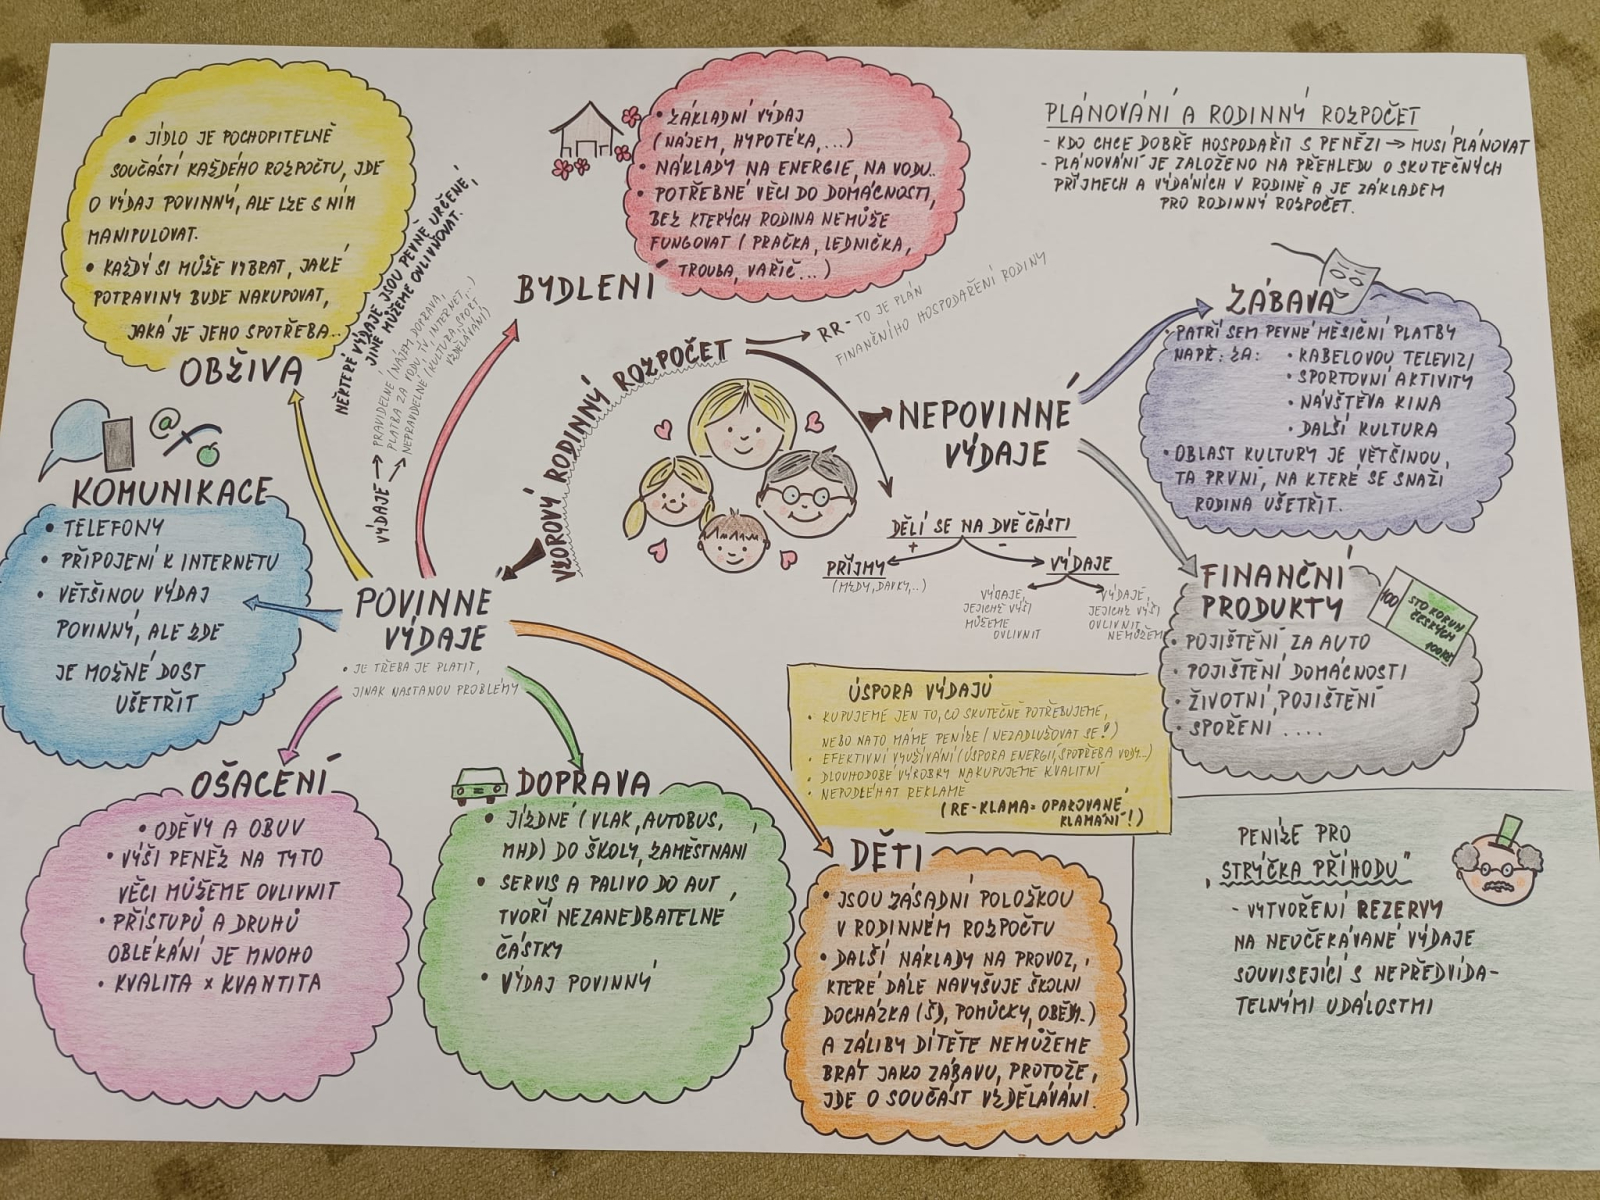 PLÁNOVÁNÍ A RODINNÝ ROZPOČET
- KDO CHCE DOBŘE HOSPODAŘIT S PENĚZI → MUSÍ PLÁNOVAT
- PLÁNOVÁNÍ JE ZALOŽENO NA PŘEHLEDU O SKUTEČNÝCH
PŘÍJMECH A VÝDÁNÍCH V RODINĚ A JE ZÁKLADEM
PRO RODINNÝ ROZPOČET.
• JÍDLO JE POCHOPITELNĚ
SOUČÁSTÍ KAŽDÉHO ROZPOČTU, JDE
O VÝDAJ POVINNÝ, ALE LZE S NÍM
MANIPULOVAT.
• KAŽDÝ SI MŮŽE VYBRAT, JAKÉ
POTRAVINY BUDE NAKUPOVAT,
JAKÁ JE JEHO SPOTŘEBA...
OBŽIVA
NĚKTERÉ VÝDAJE JSOU PEVNĚ URČENÉ,
JINÉ MŮŽEME OVLIVŇOVAT.
VÝDAJE → PRAVIDELNÉ (NÁJEM, DOPRAVA,
PLATBA ZA VODU, TV, INTERNET,...)
→ NEPRAVIDELNÉ (KULTURA, SPORT,
VZDĚLÁVÁNÍ)
• ZÁKLADNÍ VÝDAJ
(NÁJEM, HYPOTÉKA,...)
• NÁKLADY NA ENERGIE, NA VODU.
• POTŘEBNÉ VĚCI DO DOMÁCNOSTI,
BEZ KTERÝCH RODINA NEMŮŽE
FUNGOVAT (PRAČKA, LEDNIČKA,
TROUBA, VAŘIČ...)
BYDLENÍ
VZOROVÝ RODINNÝ ROZPOČET
→ RR - TO JE PLÁN
FINANČNÍHO HOSPODAŘENÍ RODINY
NEPOVINNÉ
VÝDAJE
DĚLÍ SE NA DVĚ ČÁSTI
+ -
PŘÍJMY
(MZDY, DÁVKY,..)
VÝDAJE
VÝDAJE,
JEJICHŽ VÝŠI
MŮŽEME
OVLIVNIT
VÝDAJE,
JEJICHŽ VÝŠI
OVLIVNIT
NEMŮŽEME
ZÁBAVA
• PATŘÍ SEM PEVNÉ MĚSÍČNÍ PLATBY
NAPŘ. ZA: • KABELOVOU TELEVIZI
• SPORTOVNÍ AKTIVITY
• NÁVŠTĚVA KINA
• DALŠÍ KULTURA
• OBLAST KULTURY JE VĚTŠINOU,
TA PRVNÍ, NA KTERÉ SE SNAŽÍ
RODINA UŠETŘIT.
FINANČNÍ
PRODUKTY
100
STO KORUN
ČESKÝCH
100Kč
• POJIŠTĚNÍ ZA AUTO
• POJIŠTĚNÍ DOMÁCNOSTI
• ŽIVOTNÍ POJIŠTĚNÍ
• SPOŘENÍ ....
@
KOMUNIKACE
• TELEFONY
• PŘIPOJENÍ K INTERNETU
• VĚTŠINOU VÝDAJ
POVINNÝ, ALE ZDE
JE MOŽNÉ DOST
UŠETŘIT
POVINNÉ
VÝDAJE
• JE TŘEBA JE PLATIT,
JINAK NASTANOU PROBLÉMY
ÚSPORA VÝDAJŮ
• KUPUJEME JEN TO, CO SKUTEČNĚ POTŘEBUJEME,
NEBO NA TO MÁME PENÍZE (NEZADLUŽOVAT SE!)
• EFEKTIVNÍ VYUŽÍVÁNÍ (ÚSPORA ENERGIÍ, SPOTŘEBA VODY...)
• DLOUHODOBÉ VÝROBKY NAKUPUJEME KVALITNÍ
• NEPODLÉHAT REKLAMĚ
(RE-KLAMA = OPAKOVANÉ
KLAMÁNÍ!)
OŠACENÍ
• ODĚVY A OBUV
• VÝŠI PENĚZ NA TYTO
VĚCI MŮŽEME OVLIVNIT
• PŘÍSTUPŮ A DRUHŮ
OBLÉKÁNÍ JE MNOHO
• KVALITA × KVANTITA
DOPRAVA
• JÍZDNÉ (VLAK, AUTOBUS,
MHD) DO ŠKOLY, ZAMĚSTNÁNÍ
• SERVIS A PALIVO DO AUT
TVOŘÍ NEZANEDBATELNÉ
ČÁSTKY
• VÝDAJ POVINNÝ
DĚTI
• JSOU ZÁSADNÍ POLOŽKOU
V RODINNÉM ROZPOČTU
• DALŠÍ NÁKLADY NA PROVOZ,
KTERÉ DÁLE NAVYŠUJE ŠKOLNÍ
DOCHÁZKA (ŠD, POMŮCKY, OBĚDY..)
A ZÁLIBY DÍTĚTE NEMŮŽEME
BRÁT JAKO ZÁBAVU, PROTOŽE,
JDE O SOUČÁST VZDĚLÁVÁNÍ.
PENÍZE PRO
„STRÝČKA PŘÍHODU"
- VYTVOŘENÍ REZERVY
NA NEOČEKÁVANÉ VÝDAJE
SOUVISEJÍCÍ S NEPŘEDVÍDA-
TELNÝMI UDÁLOSTMI